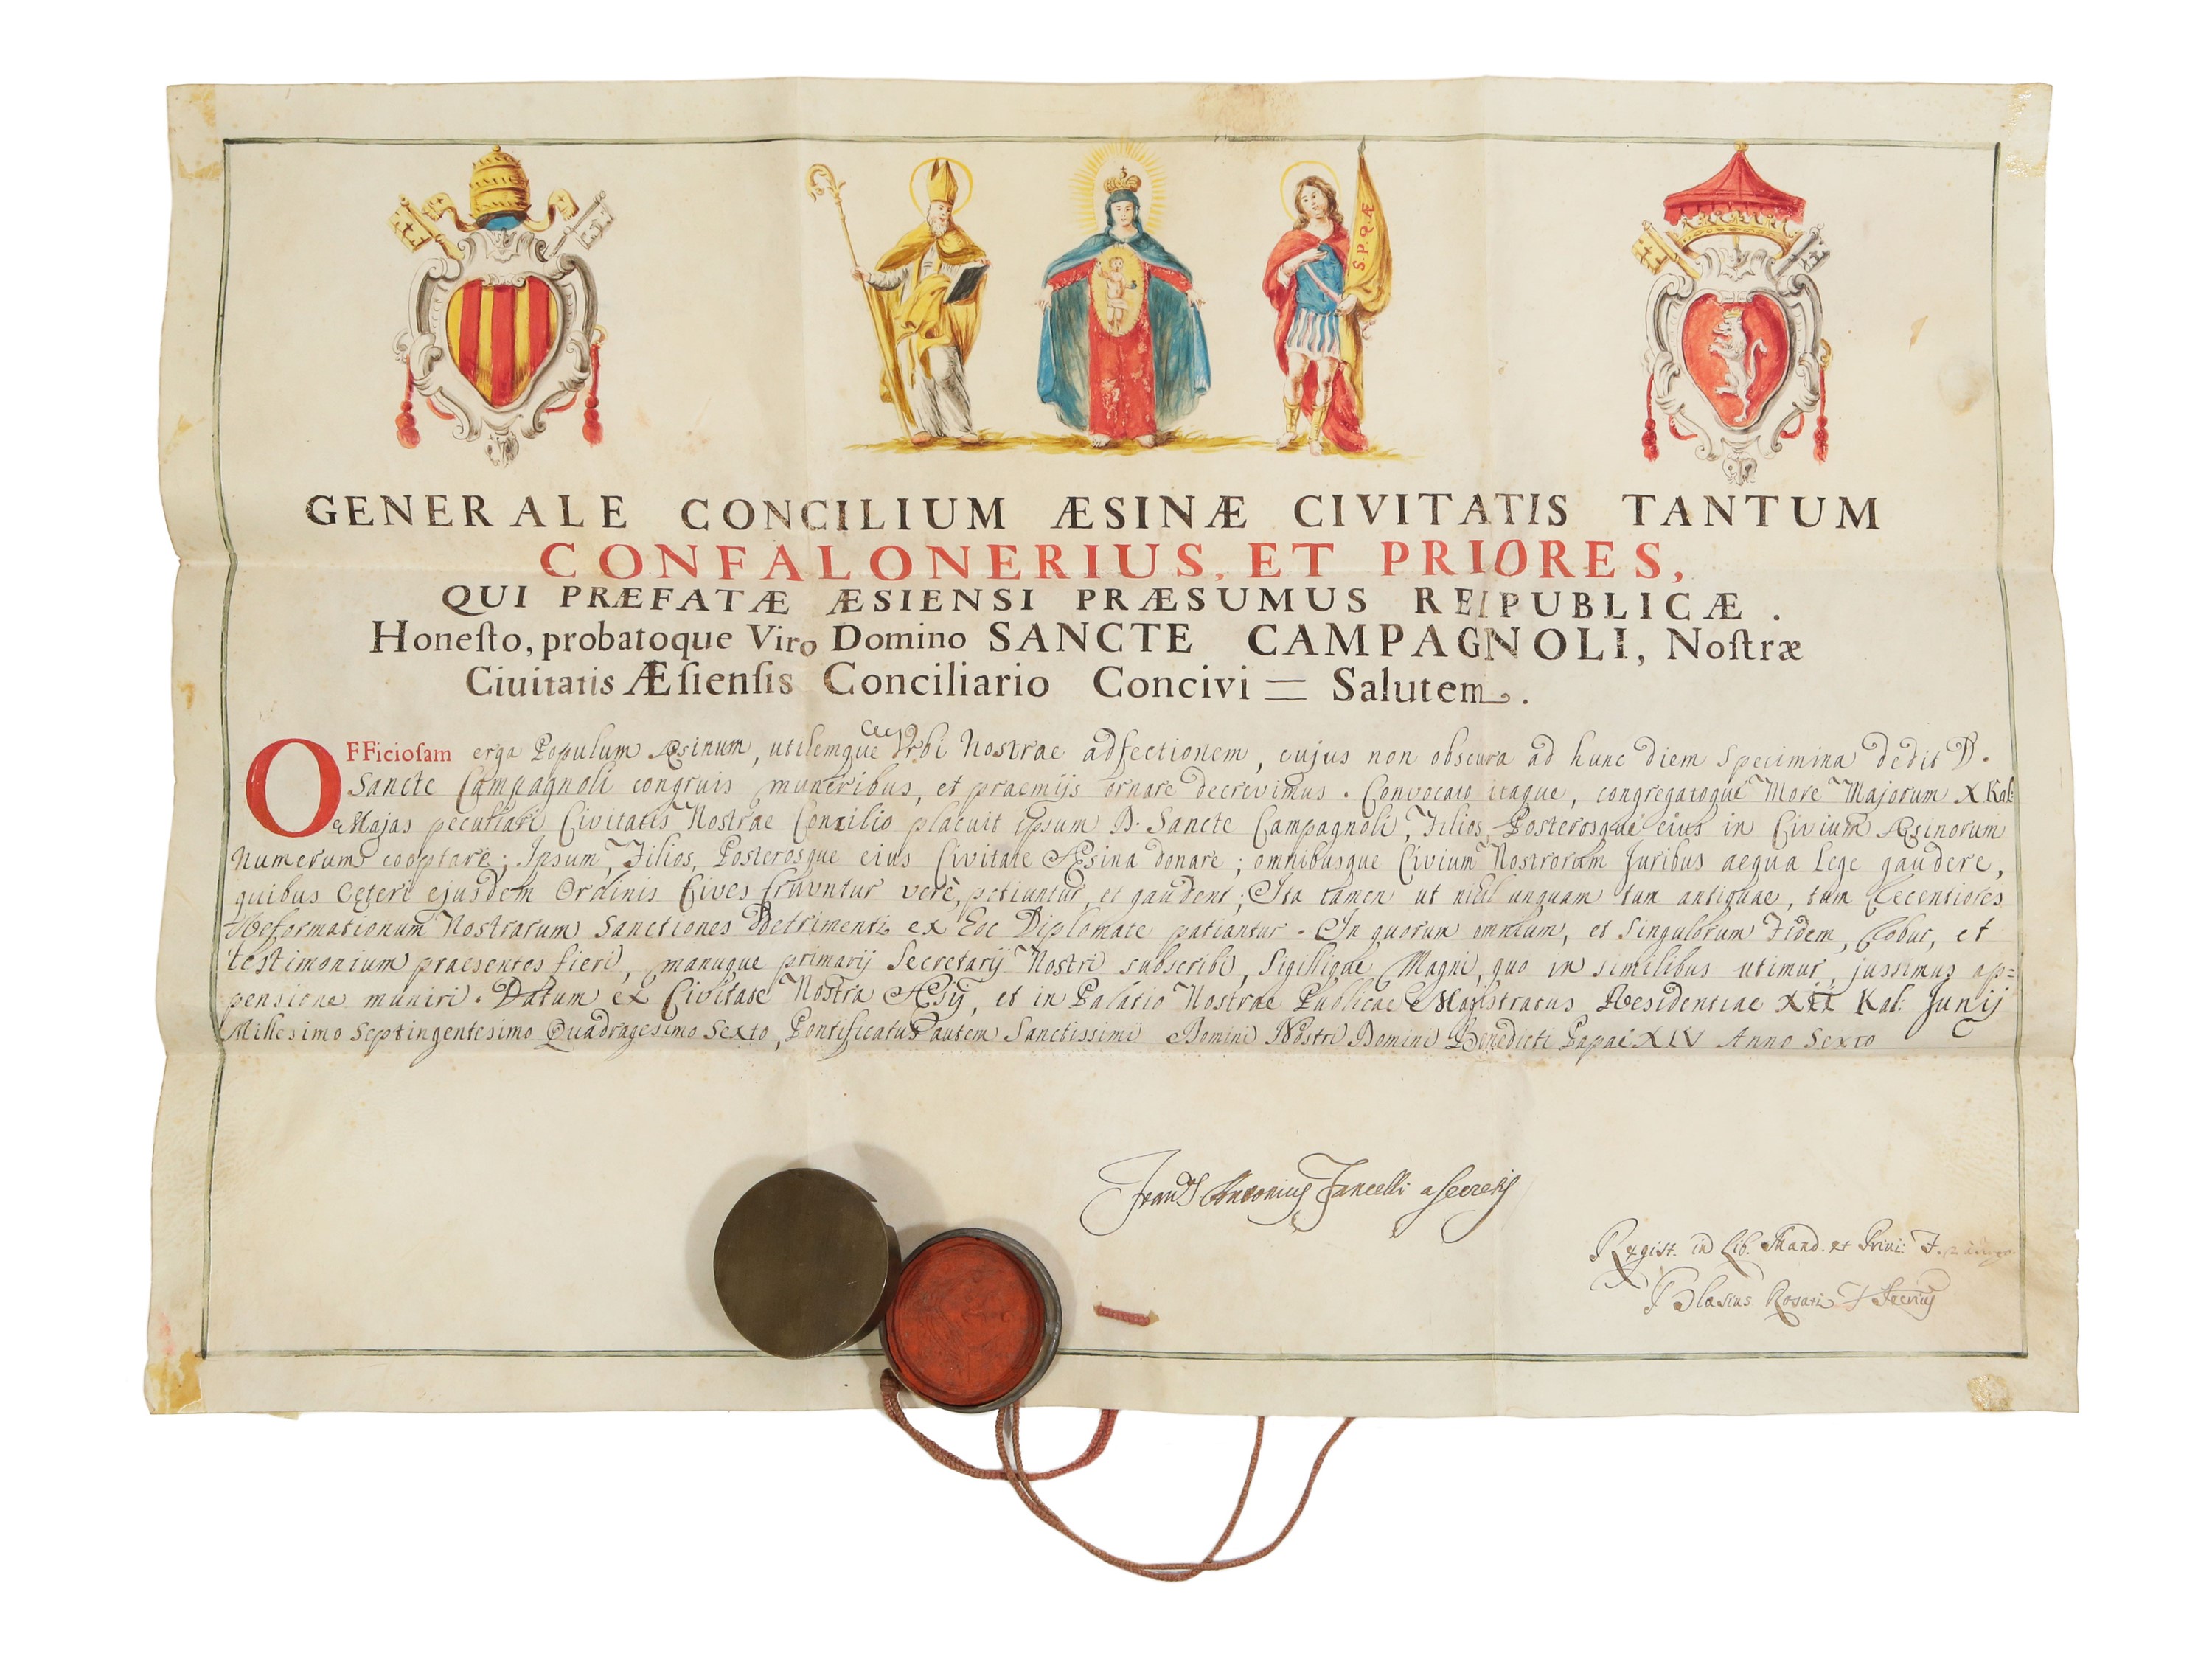 S.P.Q.Æ
GENERALE CONCILIUM ÆSINÆ CIVITATIS TANTUM
CONFALONERIUS, ET PRIORES,
QUI PRÆFATÆ ÆSIENSI PRÆSUMUS REIPUBLICÆ.
Honesto, probatoque Viro Domino SANCTE CAMPAGNOLI, Nostræ
Civitatis Æsiensis Conciliario Concivi = Salutem.
OFFiciosam erga Populum Æsinum, utilemque Urbi Nostrae adfectionem, cujus non obscura ad hunc diem Specimina dedit D.
Sancte Campagnoli congruis muneribus, et praemijs ornare decrevimus. Convocato itaque, congregatoque More Majorum X Kal:
Majas peculiari Civitatis Nostrae Concilio placuit ipsum D. Sancte Campagnoli, Filios, Posterosque eius in Civium Æsinorum
Numerum cooptare; Ipsum, Filios, Posterosque eius Civitate Æsina donare; omnibusque Civium Nostrorum Juribus aequa Lege gaudere,
quibus Ceteri ejusdem Ordinis Cives fruuntur verè, potiuntur, et gaudent; Ita tamen ut nihil unquam tum antiquae, tum Recentiores
Reformationum Nostrarum Sanctiones Detrimenti ex Hoc Diplomate patiantur. In quorum omnium, et Singulorum Fidem, Robur, et
testimonium praesentes fieri, manuque primarij Secretarij Nostri subscribi, Sigillique Magni, quo in similibus utimur, jussimus ap=
pensione muniri. Datum ex Civitate Nostra Æsij, et in Palatio Nostrae Publicae Magistratus Residentiae XII Kal: Junij
Millesimo Septingentesimo Quadragesimo Sexto, Pontificatus autem Sanctissimi Domini Nostri Domini Benedicti Papae XIV Anno Sexto
Antonius Fancelli a Secretis
Regist. in Lib. Mand. et Privi:
Blasius Rosati